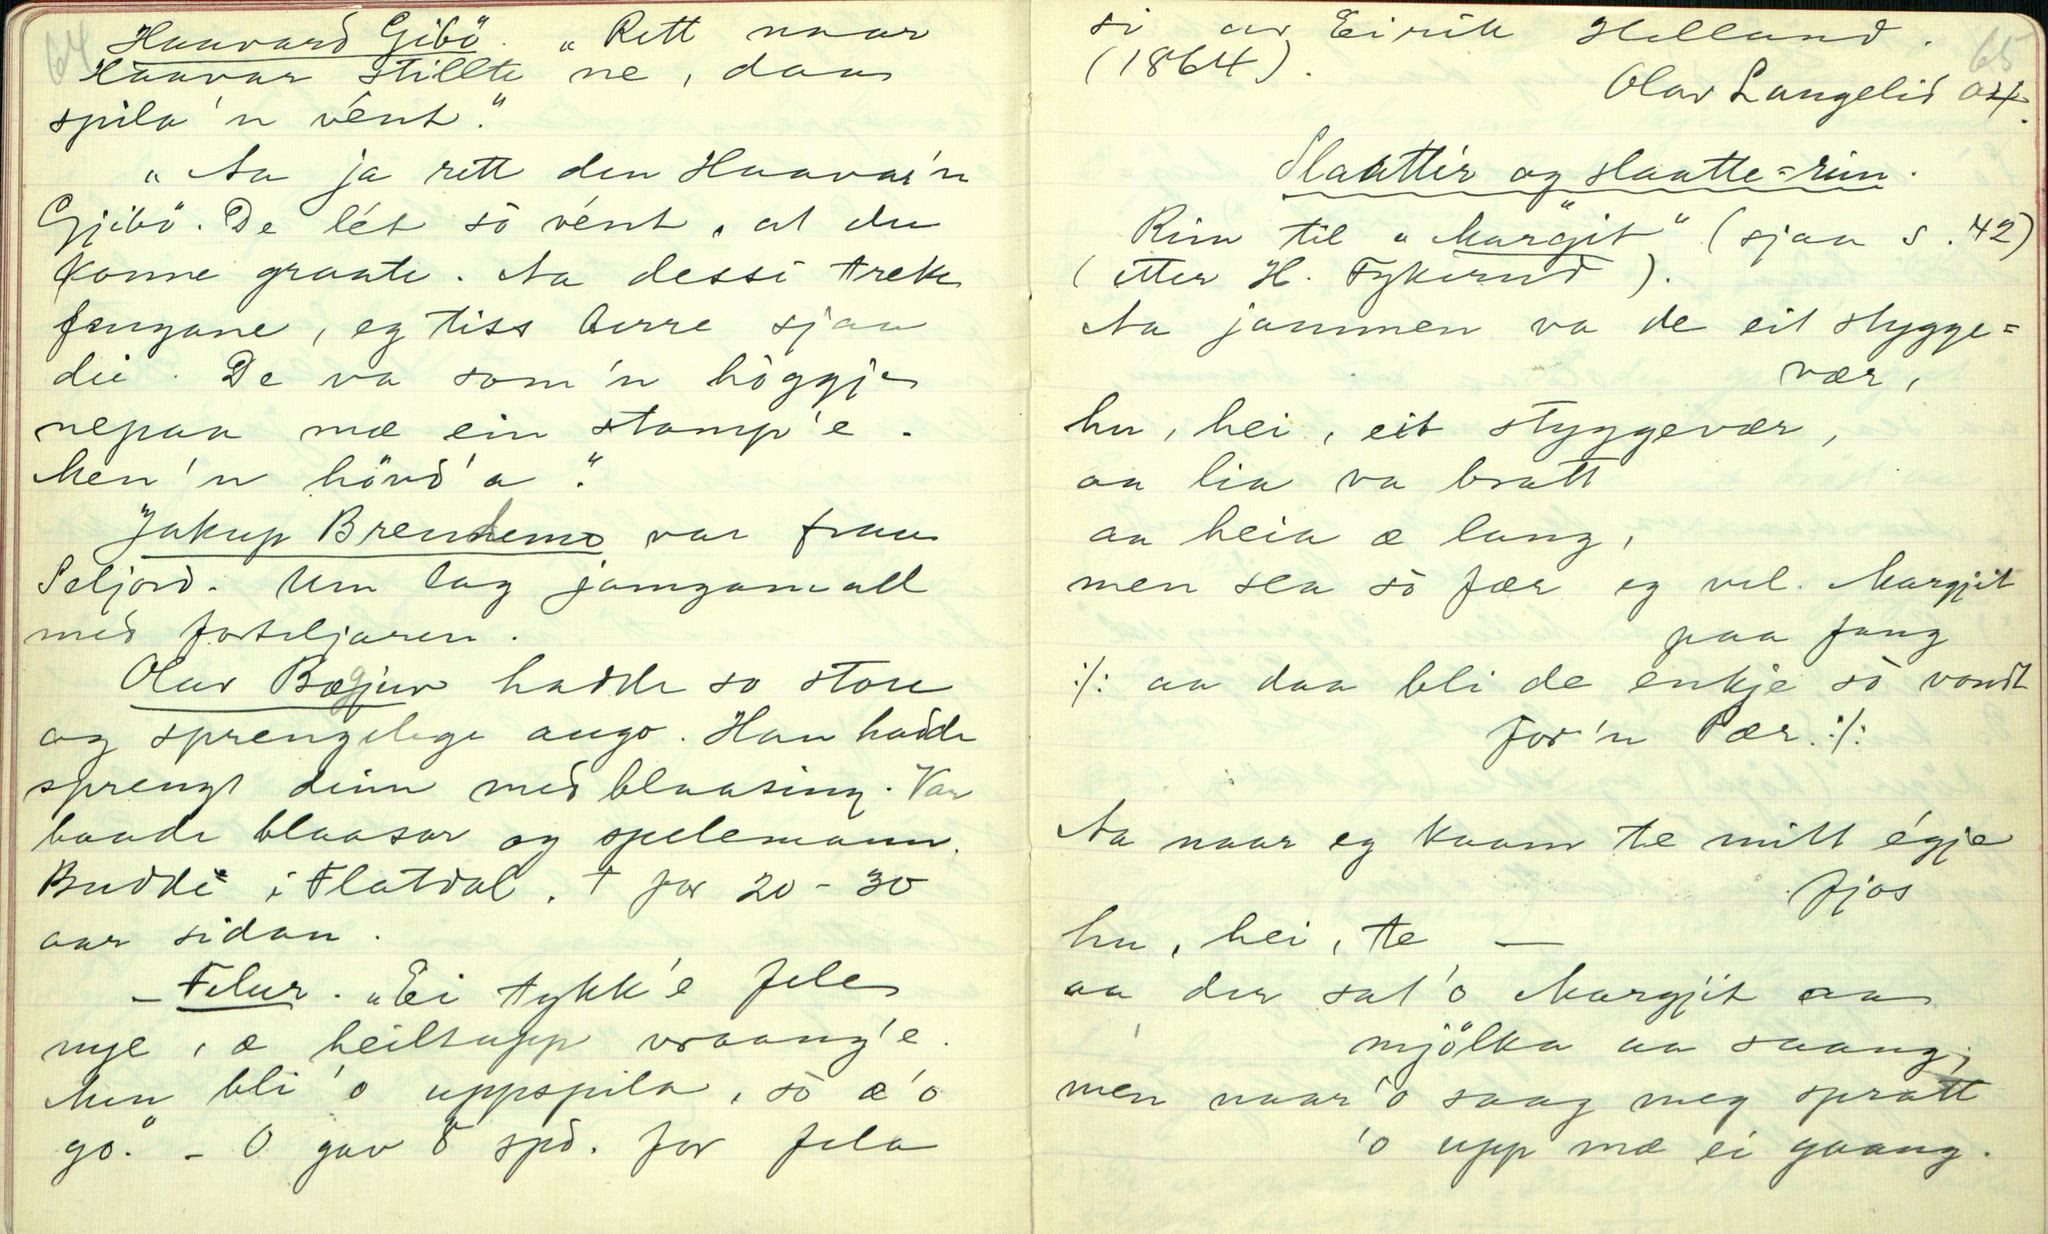 64
Haavard Gibö. „Rett naar
Haavar stillte ne, daa
spila'n vént."
„Aa ja rett den Haavar'n
Gjibö. De lét sò vént, at du
konne graate. Aa dessi trek
fingane, eg tiss berre sjaa
dei. De va som'n höggje
nepaa mæ ein stamp'e.
Men'n hövd'a".
Jakup Brendemo var fraa
Seljord. Um lag jamgamall
med forteljaren.
Olav Bægjuv hadde so store
og sprengelege augo. Han hadde
sprengt deim med blaasing. Var
baade blaasar og spelemann.
Budde i Flatdal. † for 20-30
aar sidan.
– Felur. „Ei tykk'e fele
nye, æ heiltupp vraang'e.
Men bli'o uppspila, sò æ'o
go." – O gav 8 spd. for fela
65
si av Eirik Helland.
(1864).
Olav Langelid 04.
Slaattir og slaatte=rim.
Rim til „Margit" (sjaa s. 42)
(etter H. Fykerud).
Aa jammen va de eit stygge=
vær,
hu, hei, eit styggevær,
aa lia va bratt
aa heia æ lang,
men slæ sò fær eg vel Margjit
paa fang
:/: aa daa bli de enkje sò vondt
for'n Pær. :/:
Aa naar eg kaam te mitt égje
fjos
hu, hei, te —
aa der sat'o Margjit aa
mjölka aa saang,
men naar'o saag meg spratt
'o upp mæ ei gaang.